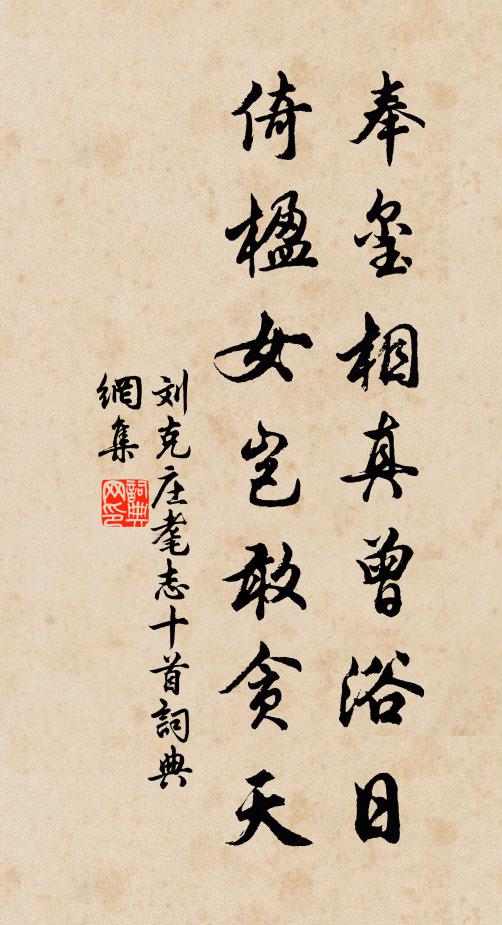 奉玺相真曾浴日
倚楹女岂敢贪天
刘克庄耄志十首詞典
網集
詞典
网印